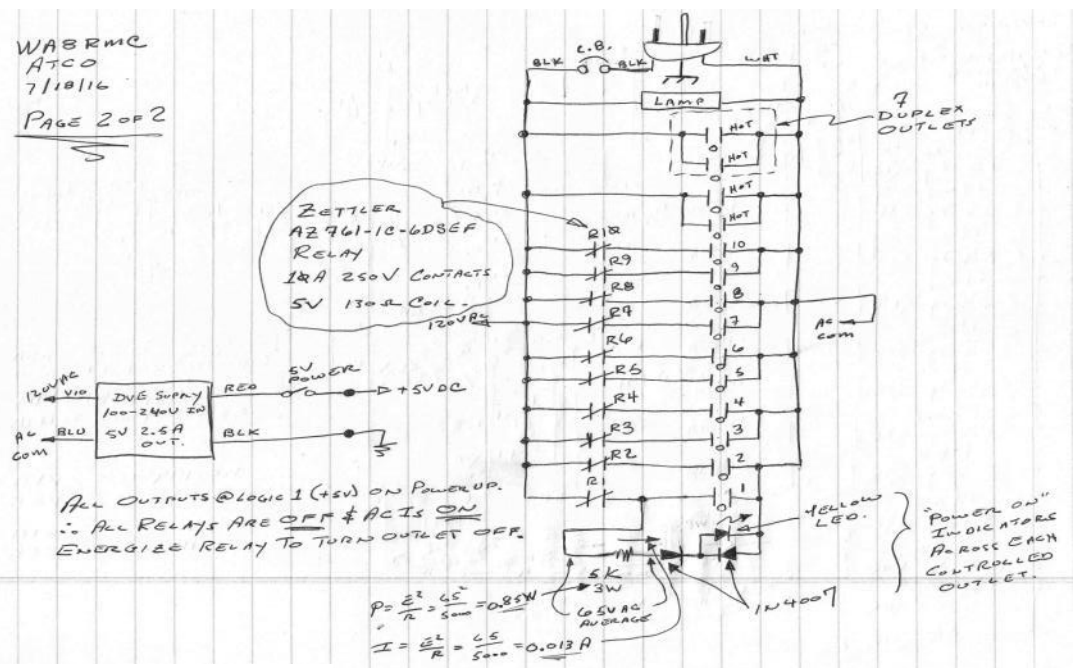 WA8RMC
ATCO
7/18/16
PAGE 2 OF 2
C.B.
BLK
BLK
WHT
LAMP
7
DUPLEX
OUTLETS
HOT
HOT
HOT
HOT
ZETTLER
AZ761-1C-6DSEF
RELAY
10A 250V CONTACTS
5V 130Ω COIL.
R10
10
R9
9
R8
8
R7
7
120VAC
AC
COM
R6
6
R5
5
R4
4
R3
3
R2
2
R1
1
120VAC
VIO
DVE SUPPLY
100-240V IN
5V 2.5A
OUT.
AC
COM
BLU
RED
5V
POWER
+5VDC
BLK
ALL OUTPUTS @ LOGIC 1 (+5V) ON POWER UP.
∴ ALL RELAYS ARE OFF & AC IS ON
ENERGIZE RELAY TO TURN OUTLET OFF.
YELLOW
LED.
"POWER ON"
INDICATORS
ACROSS EACH
CONTROLLED
OUTLET.
5K
3W
65VAC
AVERAGE
1N4007
P = E²/R = 65²/5000 = 0.85W
I = E²/R = 65/5000 = 0.013A